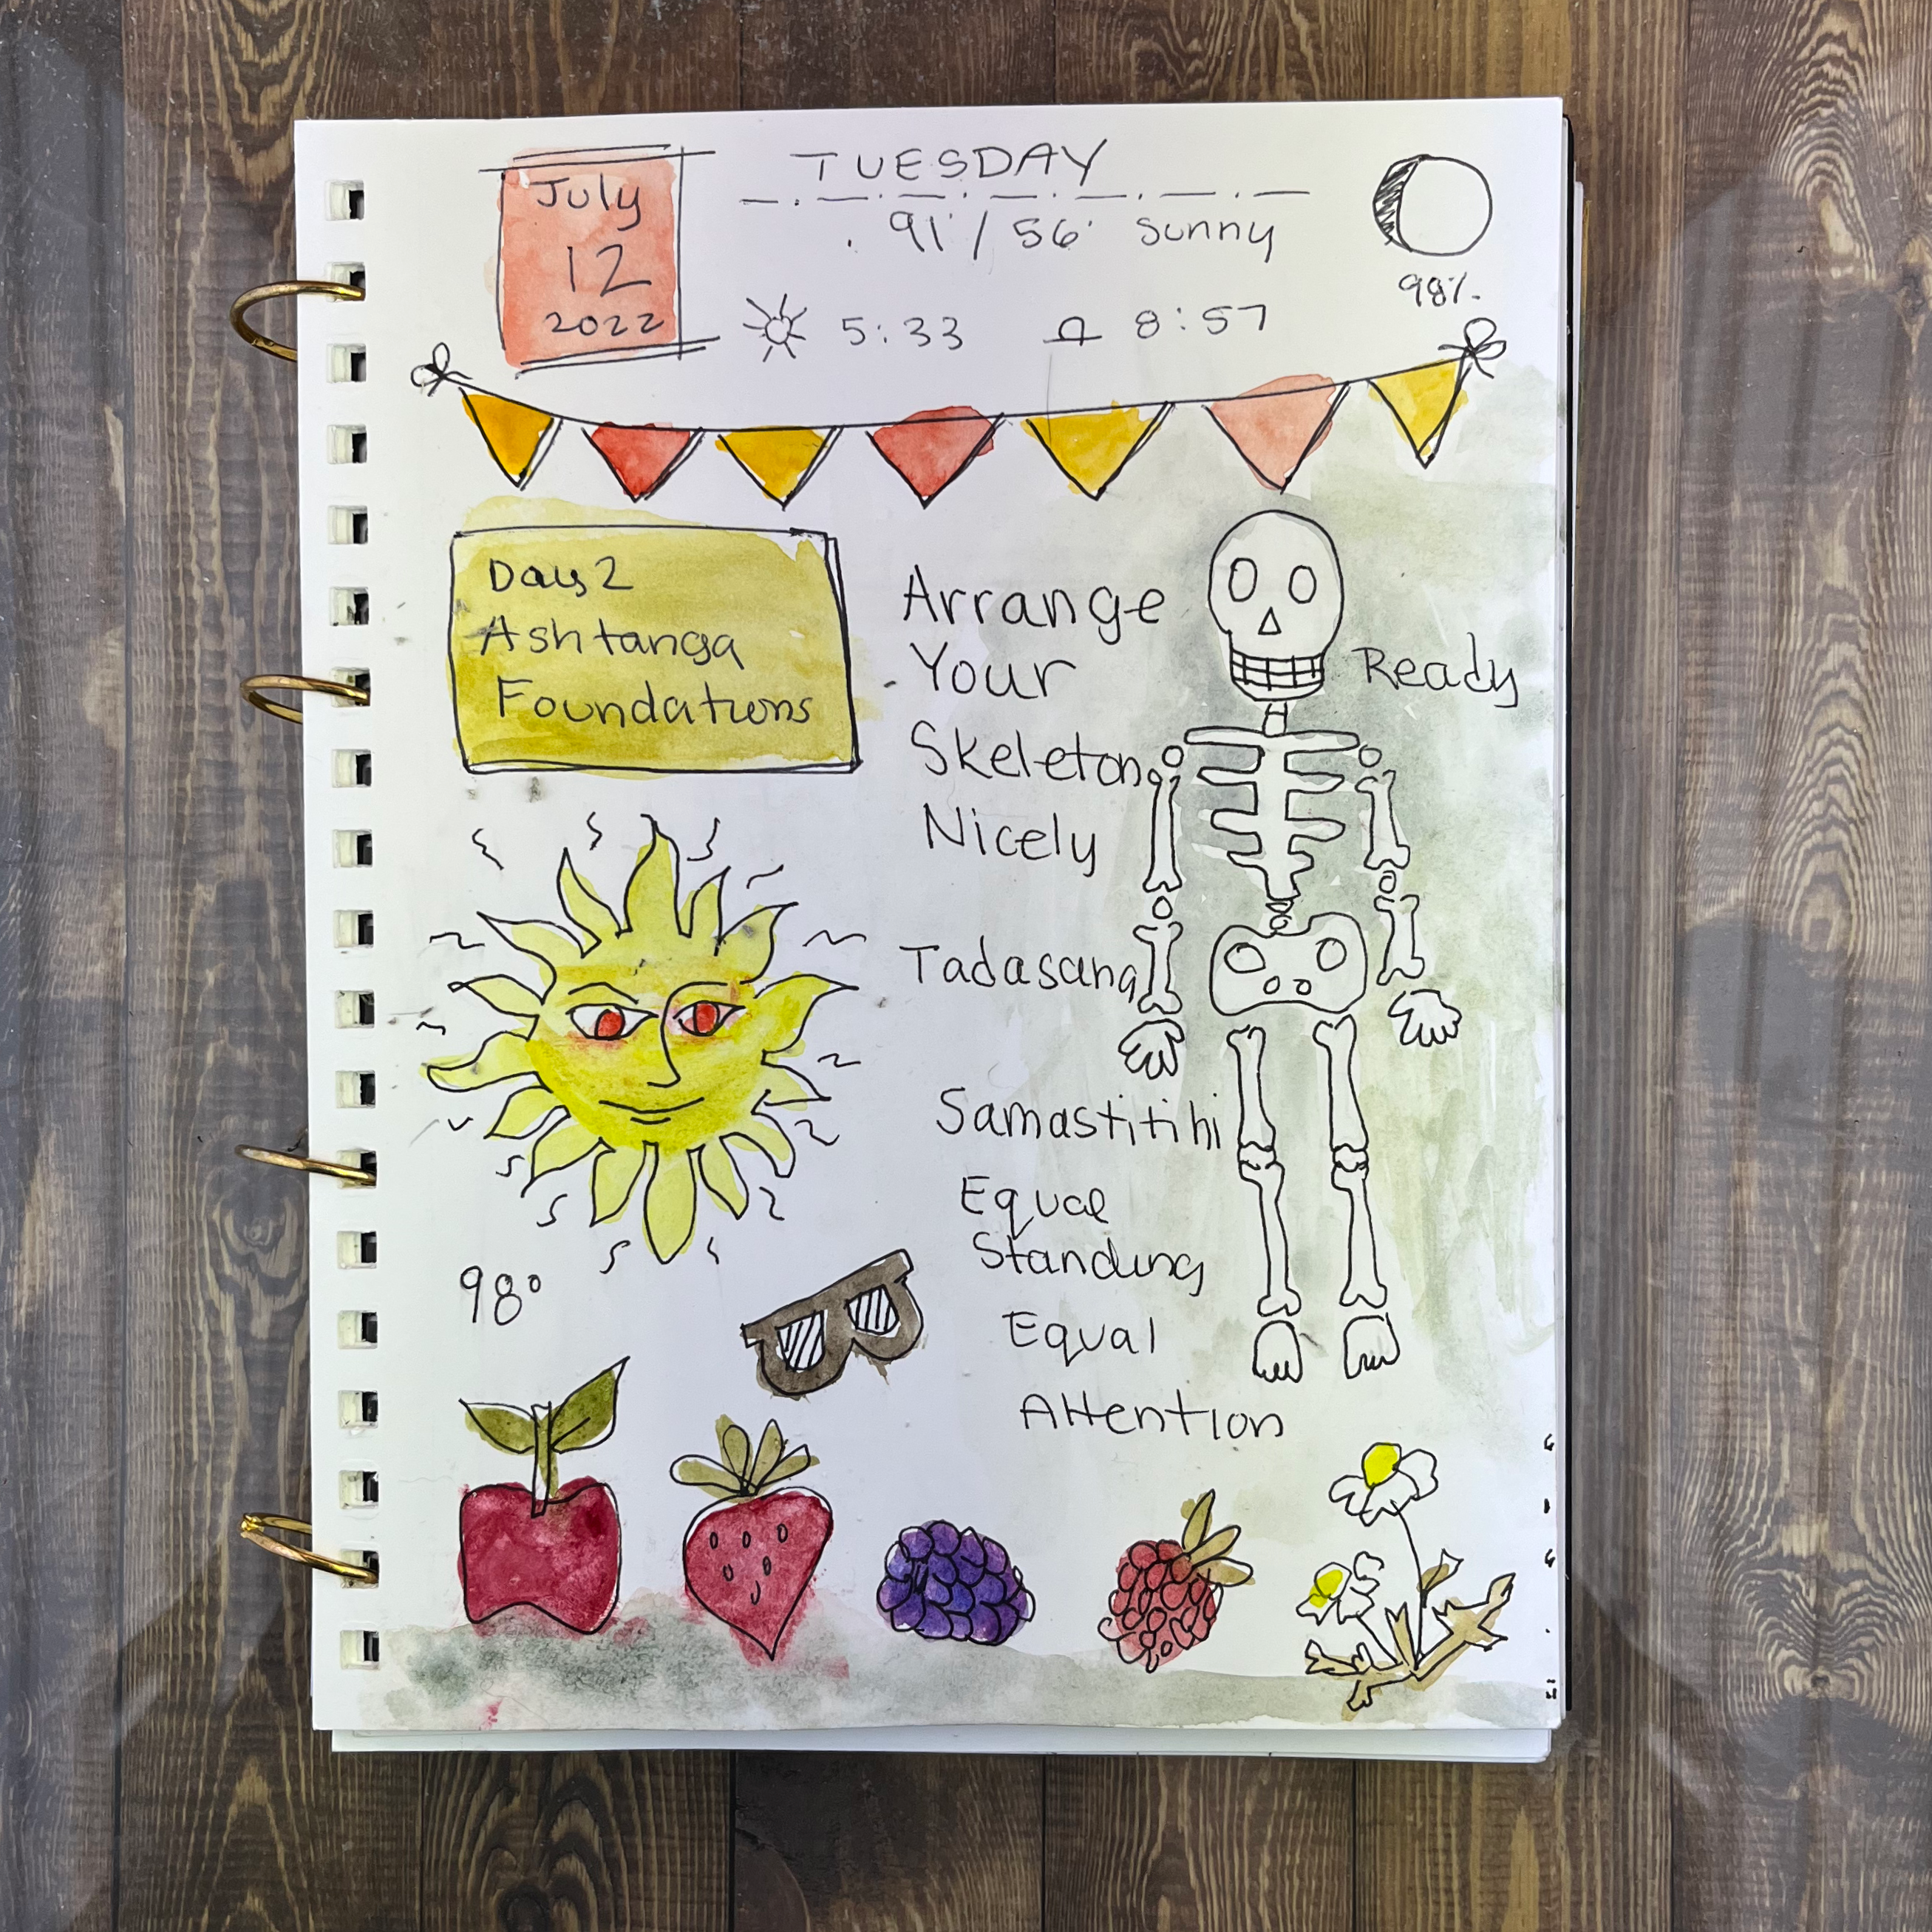 July
12
2022
TUESDAY
91°/56° sunny
98%
5:33 8:57
Day 2
Ashtanga
Foundations
Arrange
Your
Skeleton
Nicely
Ready
Tadasana
Samastitihi
Equal
Standing
Equal
Attention
98°